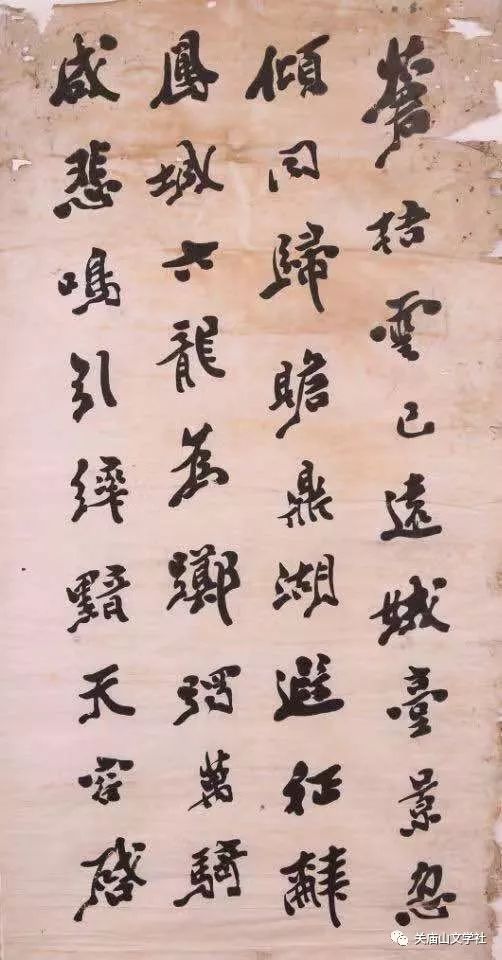 蒼梧雲已遠娥臺景忽
傾同歸瞻鼎湖遐征辭
鳳城六龍為躑躅萬騎
咸悲鳴引黯天容啓
关庙山文学社